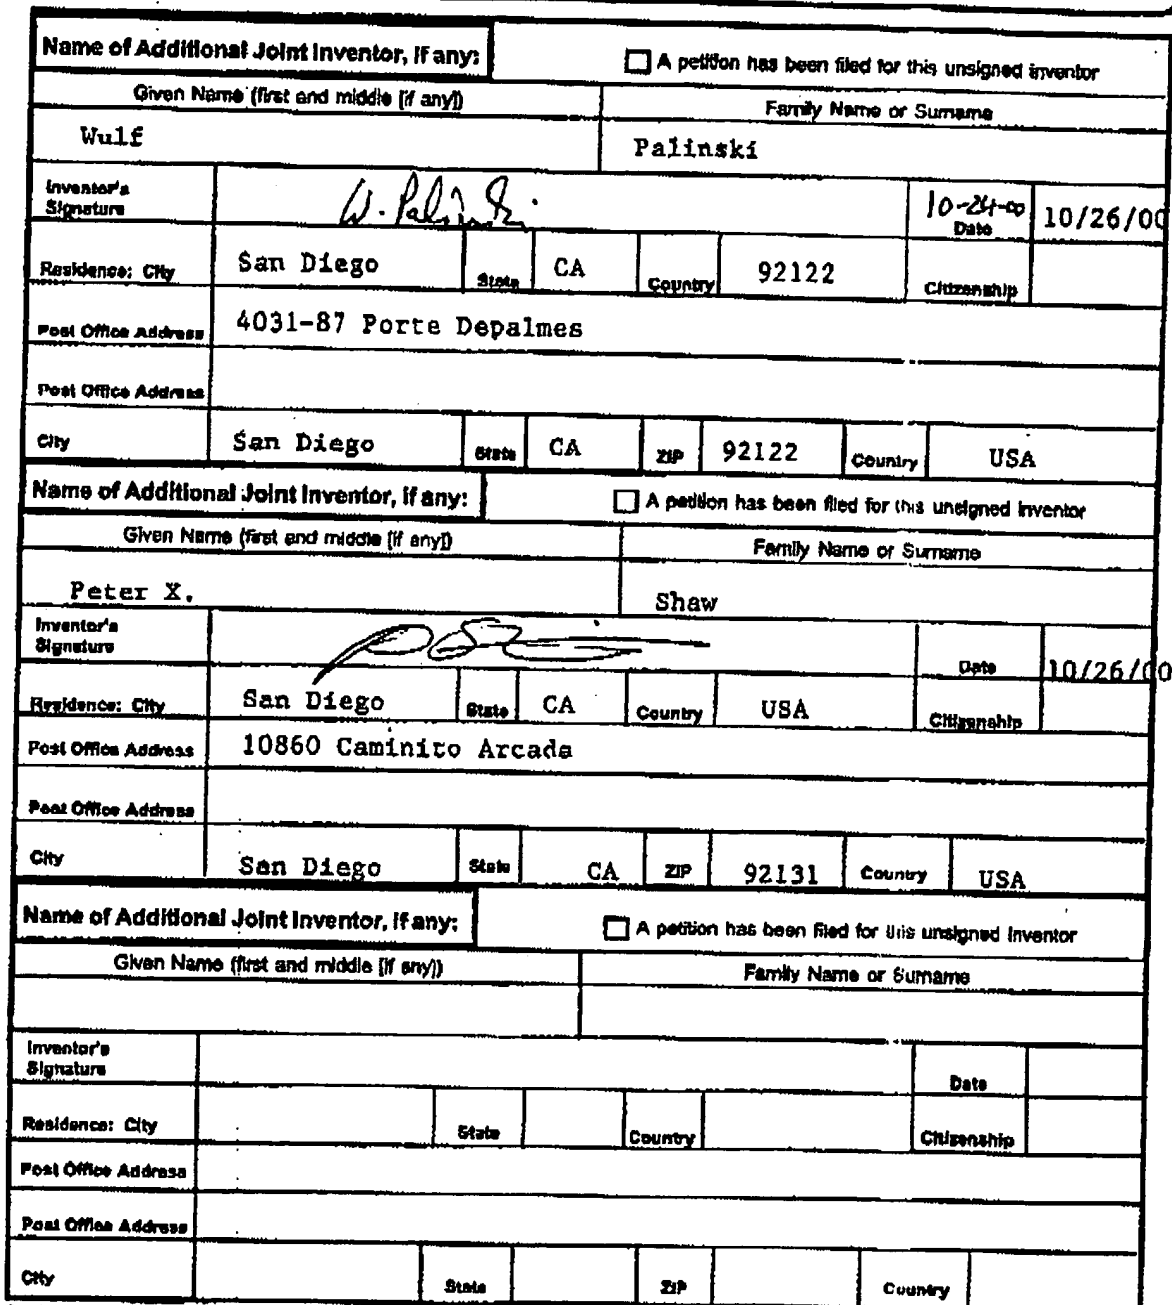 Name of Additional Joint Inventor, if any: A petition has been filed for this unsigned inventor
Given Name (first and middle [if any]) Family Name or Surname
Wulf Palinski
Inventor's Signature W. Palinski 10-24-00 Date 10/26/00
Residence: City San Diego State CA Country 92122 Citizenship
Post Office Address 4031-87 Porte Depalmes
Post Office Address
City San Diego State CA ZIP 92122 Country USA
Name of Additional Joint Inventor, if any: A petition has been filed for this unsigned inventor
Given Name (first and middle [if any]) Family Name or Surname
Peter X. Shaw
Inventor's Signature Date 10/26/00
Residence: City San Diego State CA Country USA Citizenship
Post Office Address 10860 Caminito Arcada
Post Office Address
City San Diego State CA ZIP 92131 Country USA
Name of Additional Joint Inventor, if any: A petition has been filed for this unsigned inventor
Given Name (first and middle [if any]) Family Name or Surname
Inventor's Signature Date
Residence: City State Country Citizenship
Post Office Address
Post Office Address
City State ZIP Country